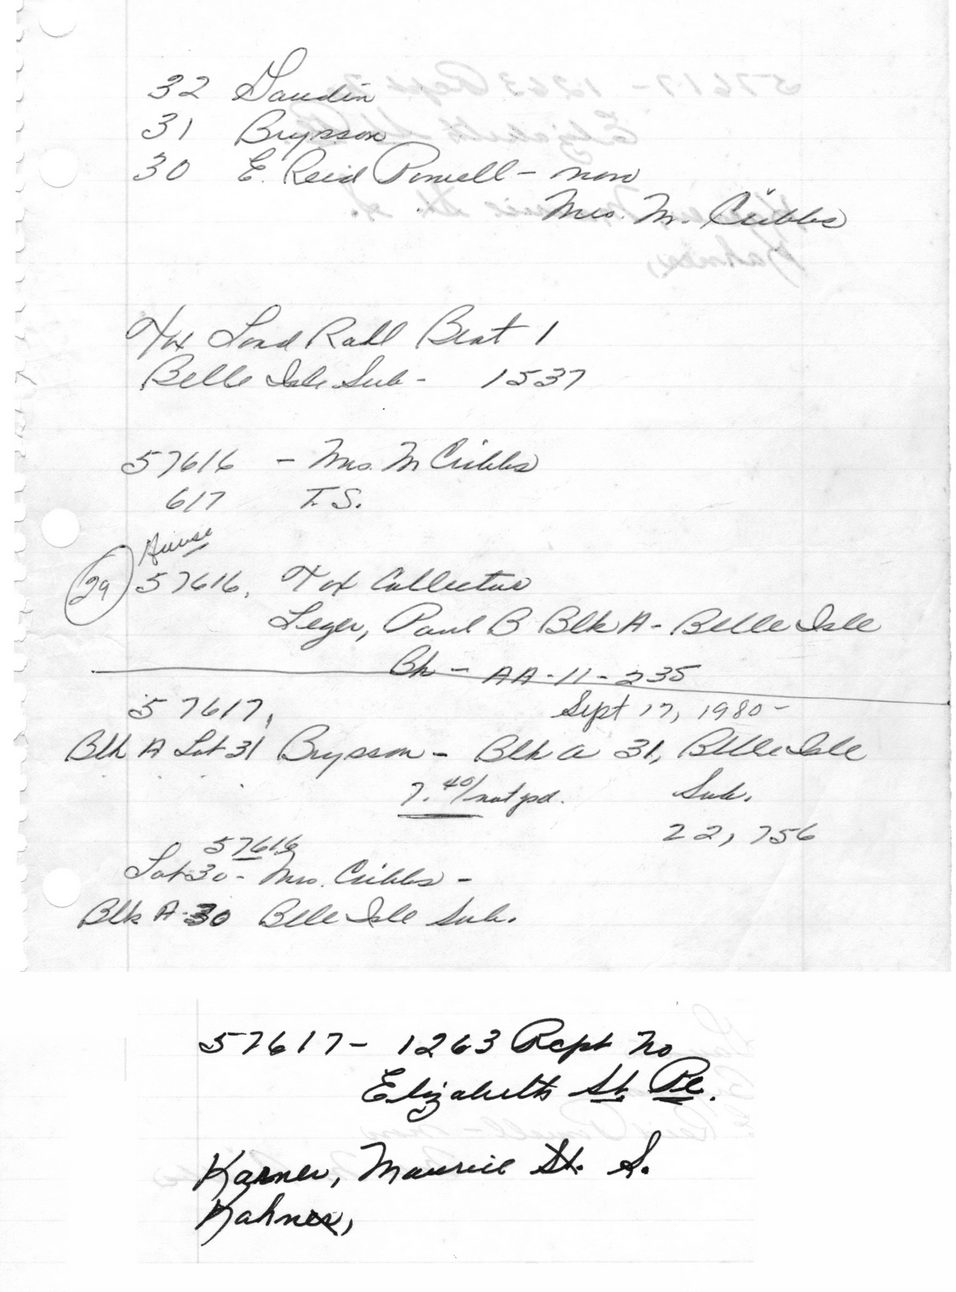 32 Gaudin
31 Brysson
30 E. Reid Powell - now
Mrs. M. Cribbs
Tax Land Roll Beat 1
Belle Isle Sub - 1537
57616 - Mrs. M Cribbs
617 T. S.
House
29 57616, Tax Collector
Leger, Paul B Blk A - Belle Isle
Bk - AA-11-235
57617, Sept 17, 1980 -
Blk A Lot 31 Brysson - Blk a 31, Belle Isle
7.40/ not pd. Sub.
22,756
57616
Lot 30 - Mrs. Cribbs -
Blk A-30 Belle Isle Sub.
57617 - 1263 Rcpt No
Elizabeth St. Pe.
Karner, Maurice St. S.
Kahner,